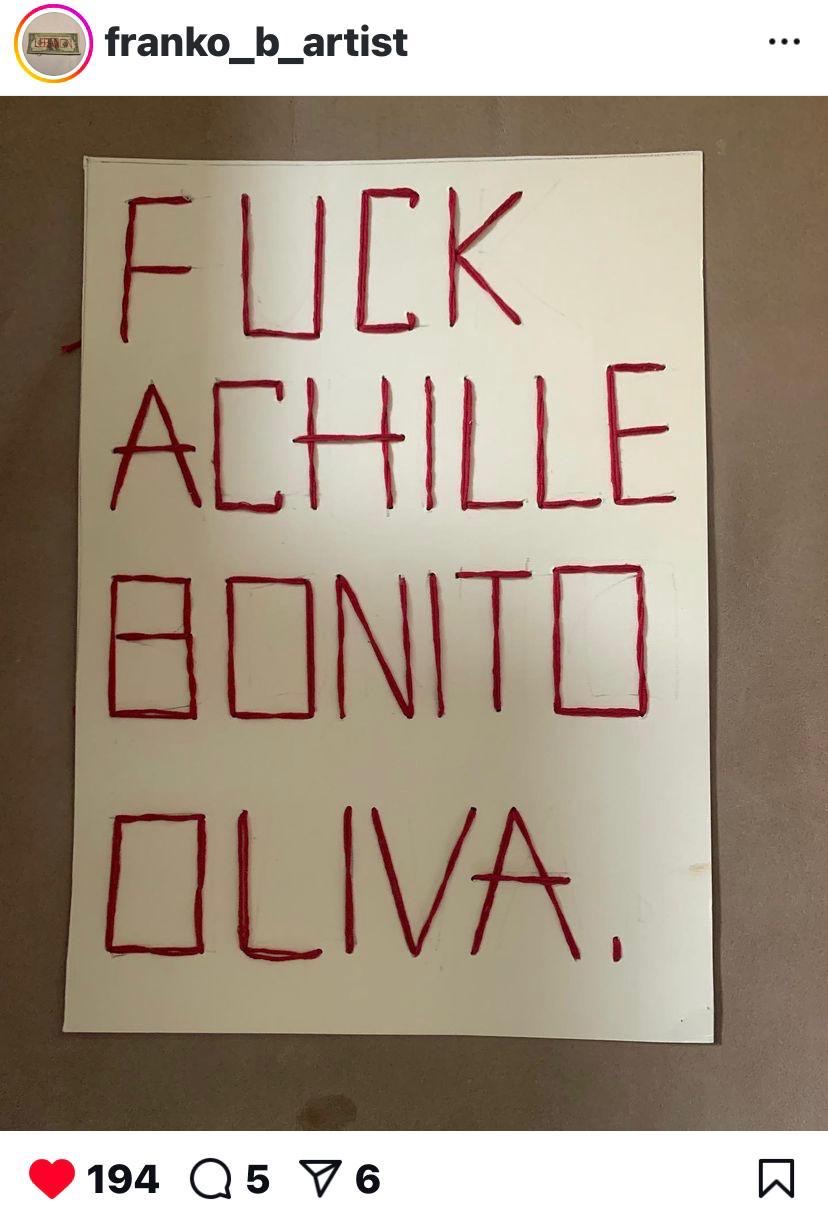 franko_b_artist
FUCK
ACHILLE
BONITO
OLIVA.
194 5 6